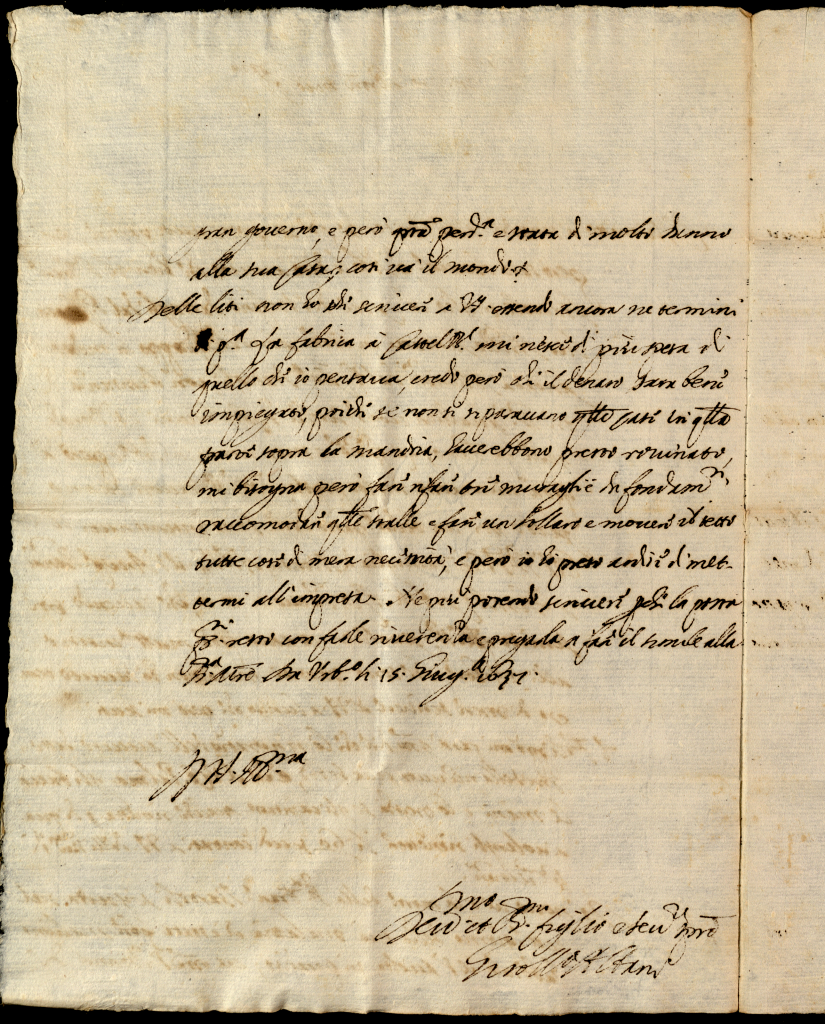 gran governo, e però perd.ª e stata di molto danno
alla sua Casa, così va il mondo
Delle liti non ho che scrivere a essendo ancora ne termini
di p.ª La fabrica à Castel mi riesce di più spesa di
quello che io pensava, credo però che il denaro sara bene
impiegato, poiche se non si riparavano q̃lle case in q̃lla
parte sopra la mandria, haverebbono presto rovinato,
mi bisogna però fare rifare tre muraglie da fondam.ti
raccomodare q̃lle stalle e fare un sollaro e movere il tetto
tutte cose di mera necessità, e però io ho preso ardire di met-
termi all'impresa. Ne più potendo scrivere la posta
resto con farle riverenza e pregarla a fare il simile alla
S.ra Urb.o li 15 Giug.º
Di V.S.
Dev.mo et figlio e ser.re